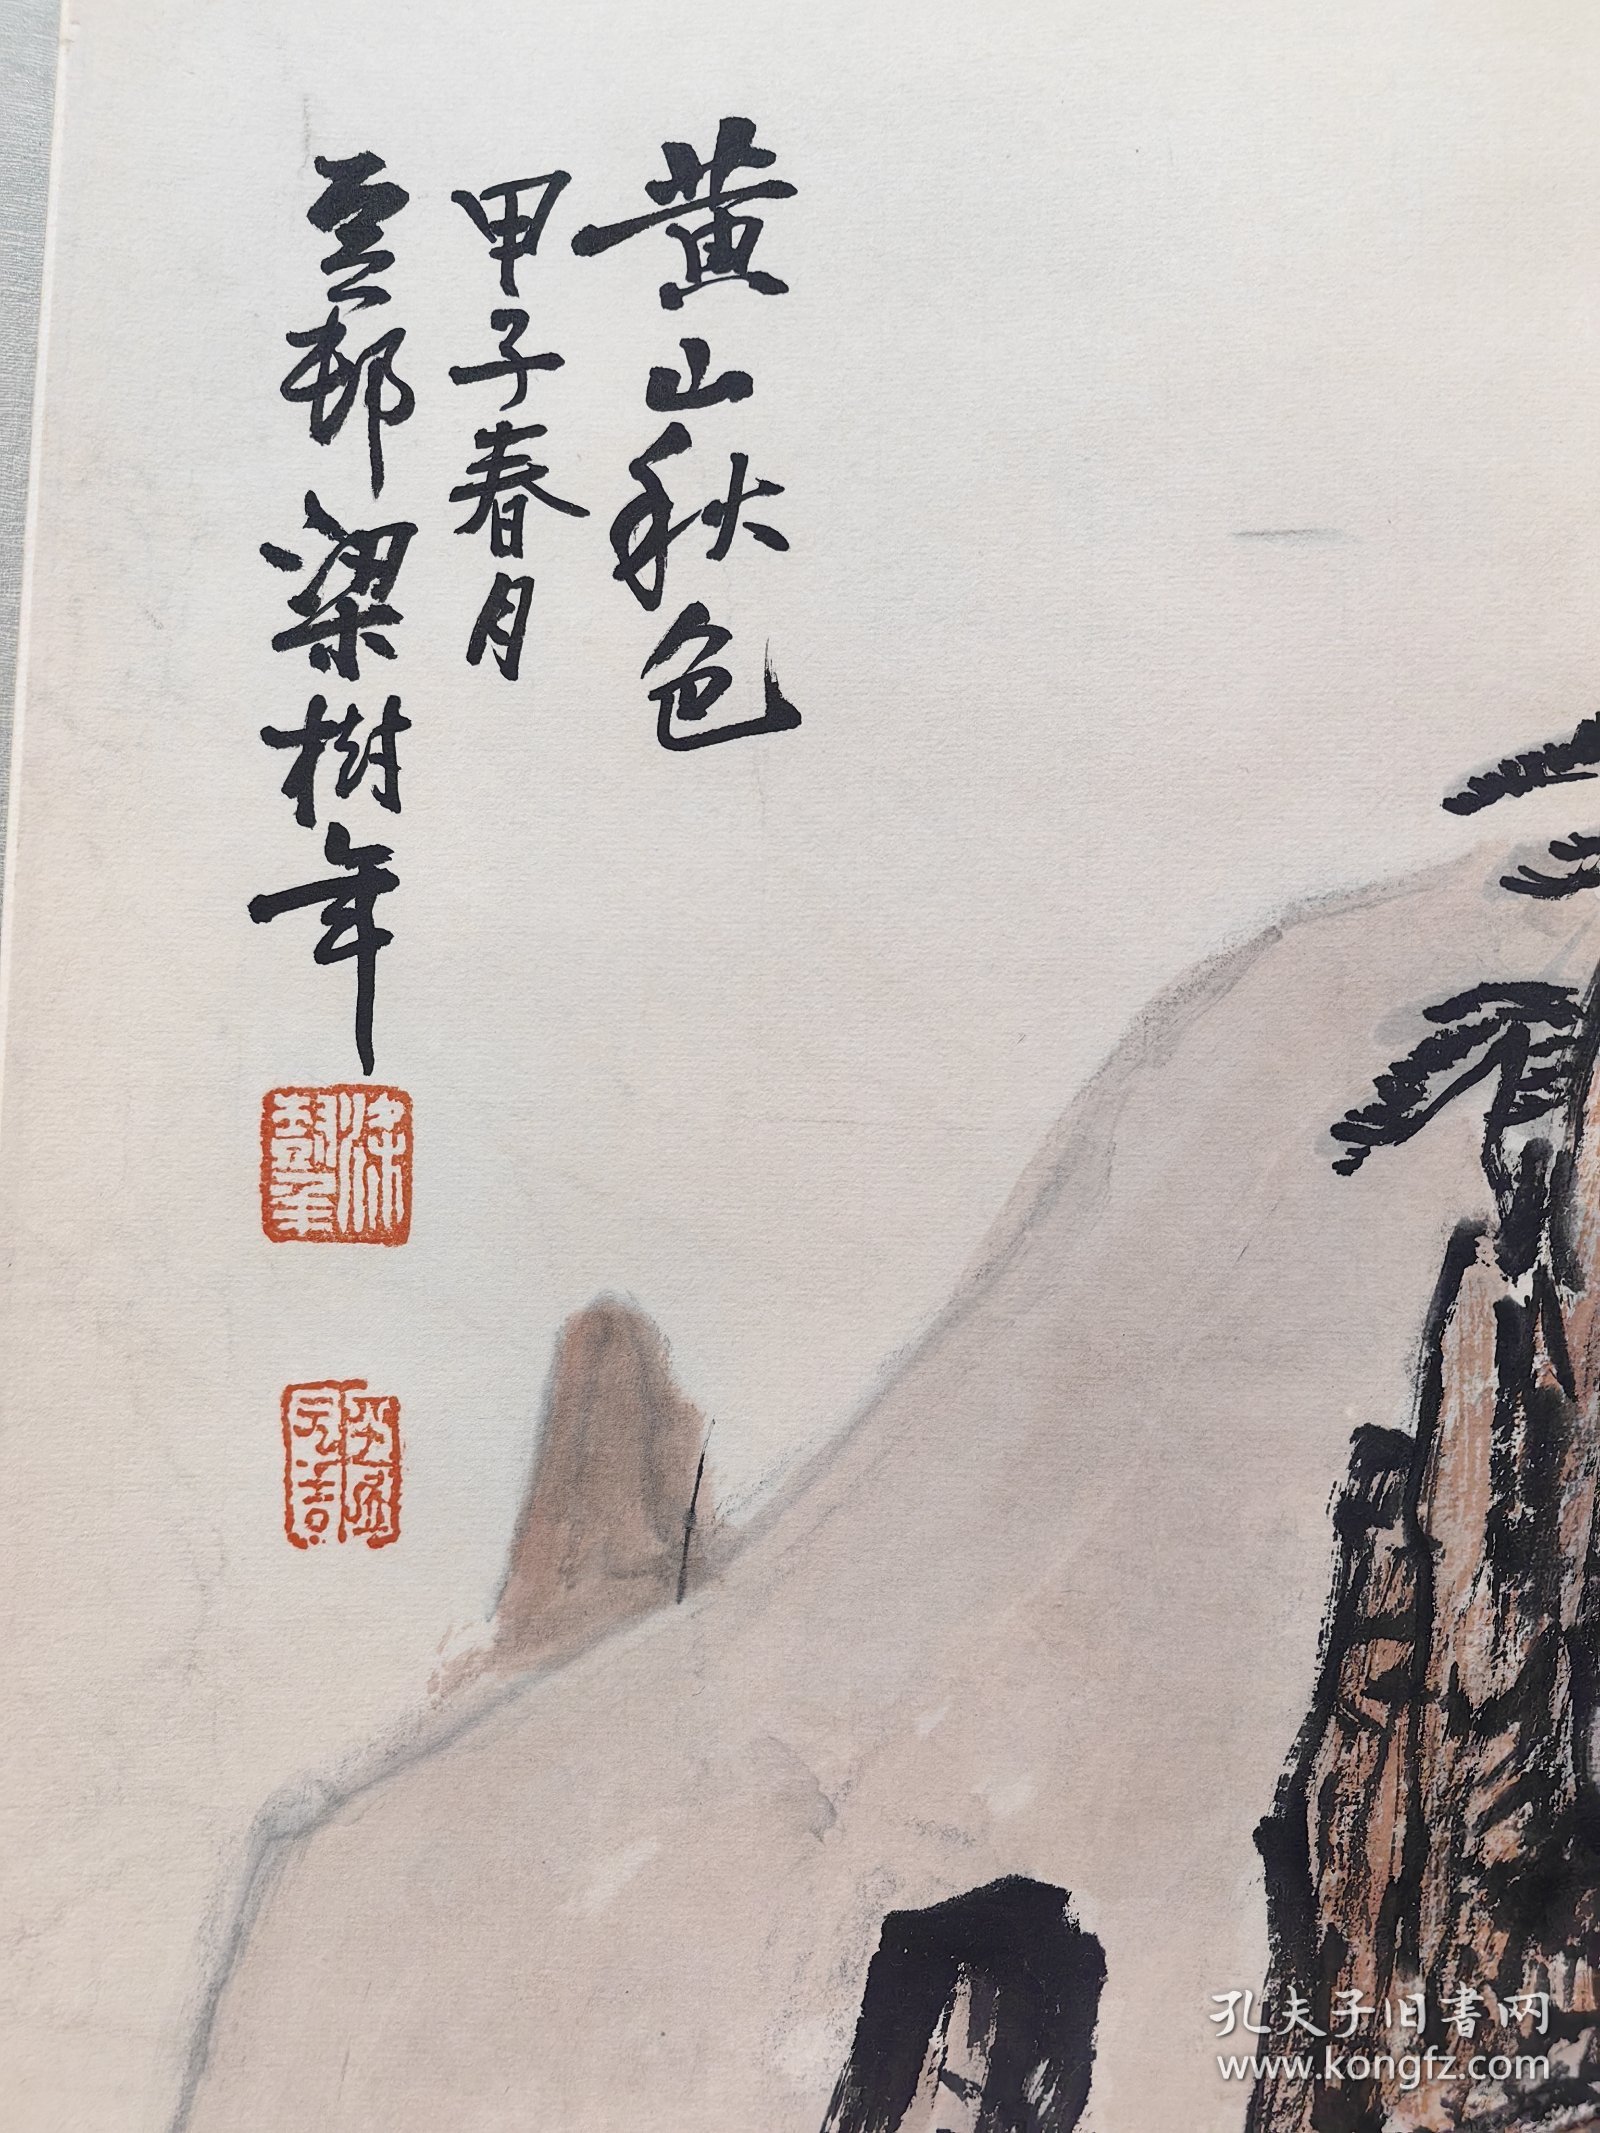 黄山秋色
甲子春月
豆邨梁樹年
梁樹年
孔夫子旧書网
www.kongfz.com